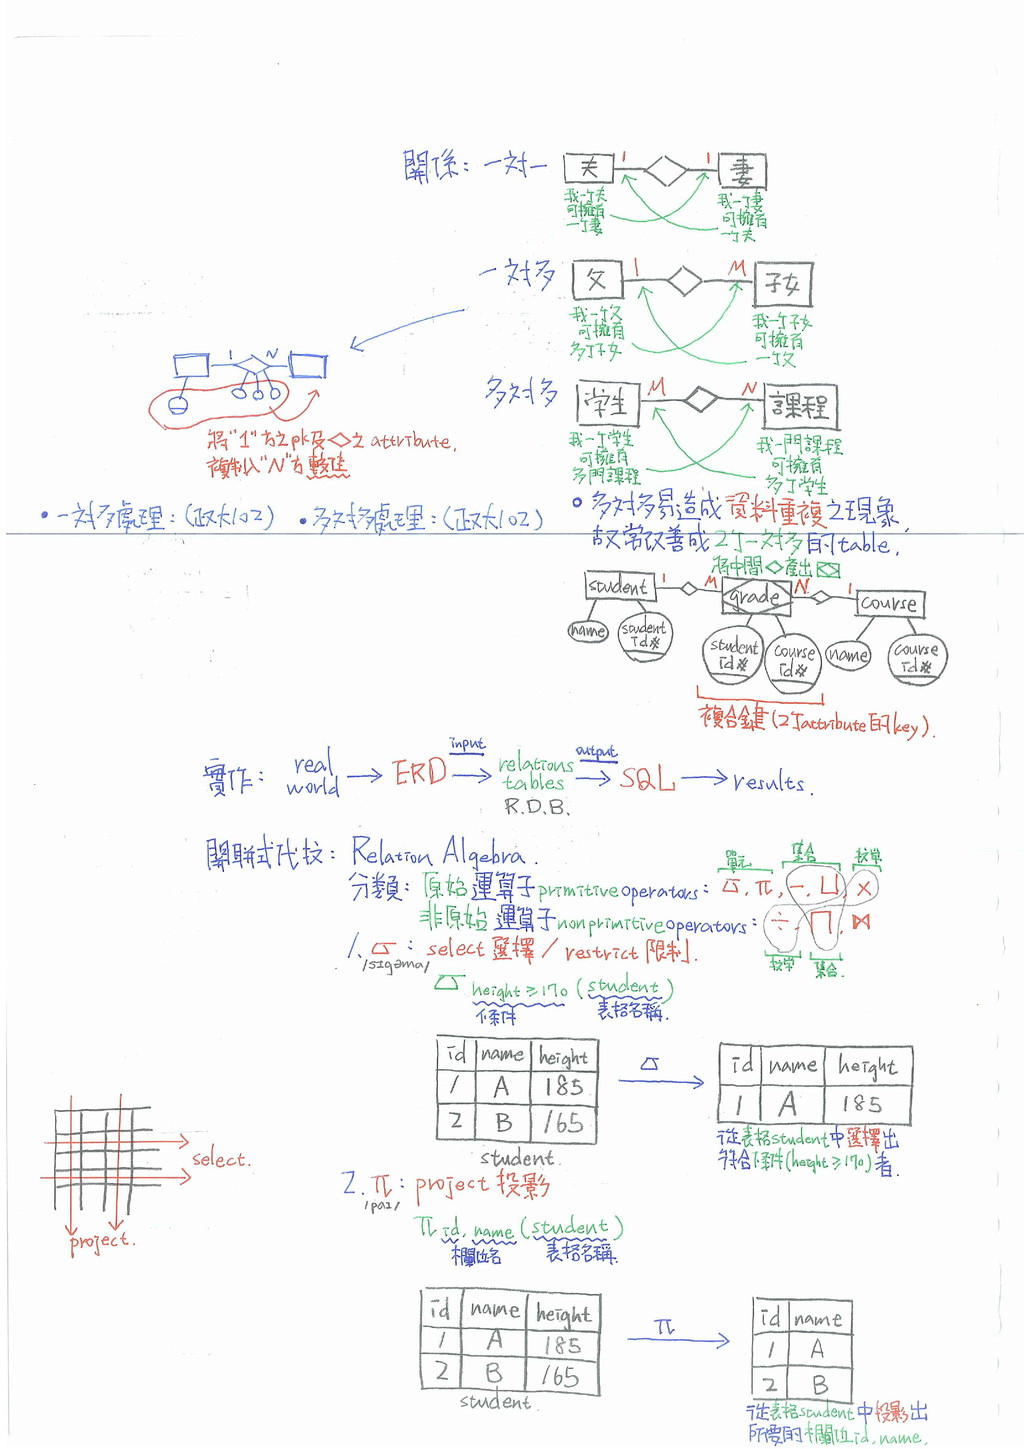 關係: 一対一
夫 1 1 妻
我一个夫
可擁有
一个妻
我一个妻
可擁有
一个夫
一対多
父 1 M 子女
我一个父
可擁有
多个子女
我一个子女
可擁有
一个父
1 N
將"1"方之pk及◇之attribute,
複制入"N"方
多対多
学生 M N 課程
我一个学生
可擁有
多門課程
我一門課程
可擁有
多个学生
• 一対多處理: (政大102) • 多対多處理: (政大102)
。多対多易造成資料重複之現象,
故常改善成2个一対多的table.
將中間◇產出
student 1 M grade N 1 course
name
student id#
student id#
course id#
name
course id#
複合鍵(2个attribute的key).
實作: real world → ERD → relations tables → SQL → results.
input
output
R.D.B.
關聯式代校: Relation Algebra.
單元 集合 校學
分類: 原始運算子primitive operators: σ, π, −, ⊔, ×
非原始運算子nonprimitive operators: ÷, ∏, ⋈
校學 集合.
1. σ: select 選擇/restrict 限制.
/sigama/
σ height ≥ 170 (student)
條件 表格名稱.
id name height
1 A 185
2 B 165
student.
σ
id name height
1 A 185
從表格student中選擇出
符合條件(height≥170)者.
select.
project.
2. π: project 投影
/pai/
π id, name (student)
欄位名 表格名稱.
id name height
1 A 185
2 B 165
student.
π
id name
1 A
2 B
從表格student中投影出
所要的欄位id, name.